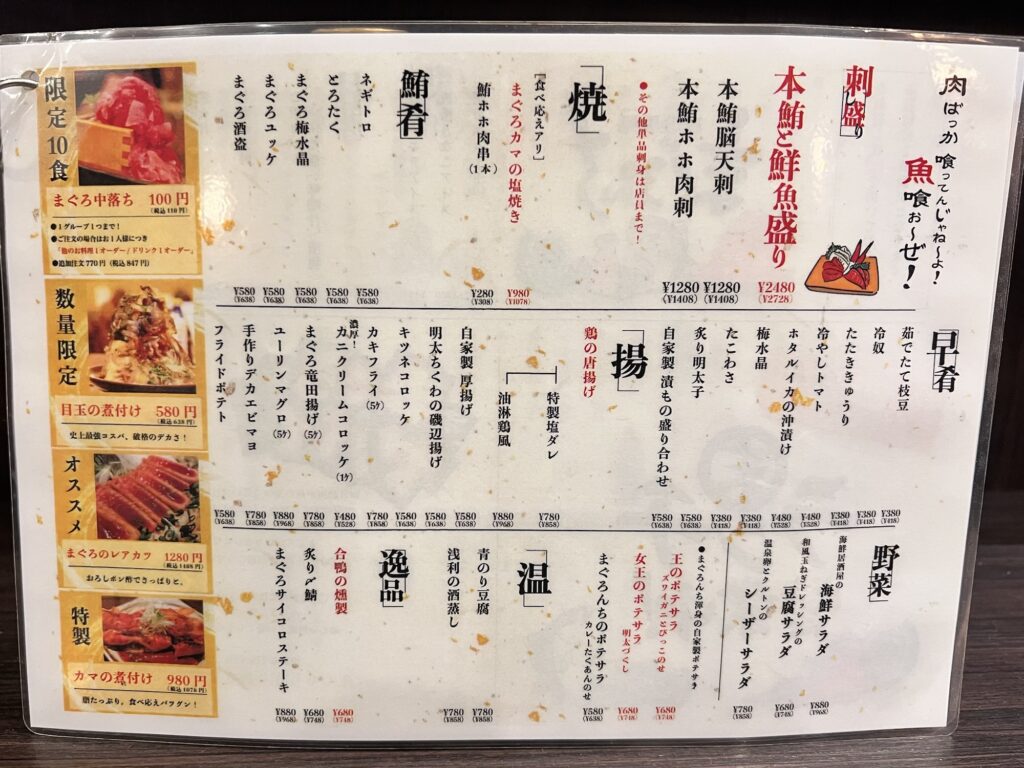 肉ばっか喰ってんじゃね〜よ!
魚喰ぉ〜ぜ!
刺し盛り
本鮪と鮮魚盛り ¥2480 (¥2728)
本鮪脳天刺 ¥1280 (¥1408)
本鮪ホホ肉刺 ¥1280 (¥1408)
●その他単品刺身は店員まで!
「焼」
[食べ応えアリ]
まぐろカマの塩焼き ¥980 (¥1078)
鮪ホホ肉串(1本) ¥280 (¥308)
鮪肴
ネギトロ ¥580 (¥638)
とろたく ¥580 (¥638)
まぐろ梅水晶 ¥580 (¥638)
まぐろユッケ ¥580 (¥638)
まぐろ酒盗 ¥580 (¥638)
早肴
茹でたて枝豆 ¥380 (¥418)
冷奴 ¥380 (¥418)
たたききゅうり ¥380 (¥418)
冷やしトマト ¥480 (¥528)
ホタルイカの沖漬け ¥480 (¥528)
梅水晶 ¥380 (¥418)
たこわさ ¥380 (¥418)
炙り明太子 ¥580 (¥638)
自家製 漬もの盛り合わせ ¥580 (¥638)
「揚」
鶏の唐揚げ
特製塩ダレ ¥780 (¥858)
油淋鶏風 ¥880 (¥968)
自家製 厚揚げ ¥580 (¥638)
明太ちくわの磯辺揚げ ¥580 (¥638)
キツネコロッケ ¥580 (¥638)
カキフライ(5ヶ) ¥780 (¥858)
濃厚!
カニクリームコロッケ(1ヶ) ¥480 (¥528)
まぐろ竜田揚げ(5ヶ) ¥780 (¥858)
ユーリンマグロ(5ヶ) ¥880 (¥968)
手作りデカエビマヨ ¥780 (¥858)
フライドポテト ¥580 (¥638)
野菜
海鮮居酒屋の
海鮮サラダ ¥880 (¥968)
和風玉ねぎドレッシングの
豆腐サラダ ¥680 (¥748)
温泉卵とクルトンの
シーザーサラダ ¥780 (¥858)
●まぐろんち渾身の自家製ポテサラ
王のポテサラ ズワイガニとびっこのせ ¥680 (¥748)
女王のポテサラ 明太づくし ¥680 (¥748)
まぐろんちのポテサラ カレーたくあんのせ ¥580 (¥638)
「温」
青のり豆腐 ¥780 (¥858)
浅利の酒蒸し ¥780 (¥858)
逸品
合鴨の燻製 ¥680 (¥748)
炙り〆鯖 ¥680 (¥748)
まぐろサイコロステーキ ¥880 (¥968)
限定10食
まぐろ中落ち 100円
(税込110円)
●1グループ1つまで!
●ご注文の場合はお1人様につき
「他のお料理1オーダー/ドリンク1オーダー」
●追加注文770円(税込847円)
数量限定
目玉の煮付け 580円
(税込638円)
史上最強コスパ、破格のデカさ!
オススメ
まぐろのレアカツ 1280円
(税込1408円)
おろしポン酢でさっぱりと、
特製
カマの煮付け 980円
(税込1078円)
脂たっぷり、食べ応えバツグン!